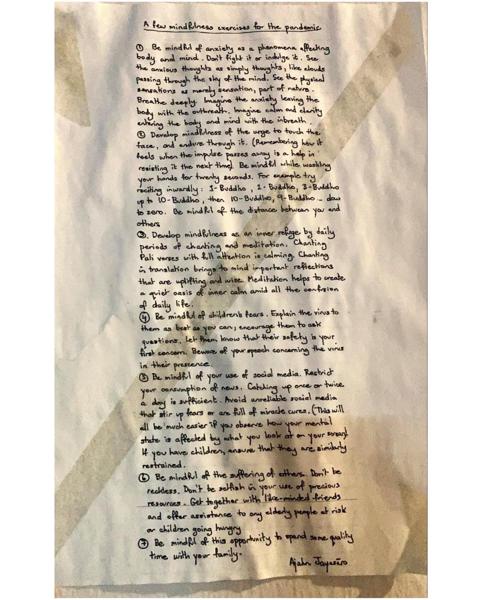 A few mindfulness exercises for the pandemic
① Be mindful of anxiety as a phenomena affecting
body and mind. Don't fight it or indulge it. See
the anxious thoughts as simply thoughts, like clouds
passing through the sky of the mind. See the physical
sensations as merely sensation, part of nature.
Breathe deeply. Imagine the anxiety leaving the
body with the outbreath. Imagine calm and clarity
entering the body and mind with the inbreath.
② Develop mindfulness of the urge to touch the
face, and endure through it. (Remembering how it
feels when the impulse passes away is a help in
resisting it the next time). Be mindful while washing
your hands for twenty seconds. For example try
reciting inwardly: 1-Buddho, 2-Buddho, 3-Buddho
up to 10-Buddho, then 10-Buddho, 9-Buddho.. down
to zero. Be mindful of the distance between you and
others
③. Develop mindfulness as an inner refuge by daily
periods of chanting and meditation. Chanting
Pali verses with full attention is calming. Chanting
in translation brings to mind important reflections
that are uplifting and wise. Meditation helps to create
a quiet oasis of inner calm amid all the confusion
of daily life.
④ Be mindful of children's fears. Explain the virus to
them as best as you can; encourage them to ask
questions. Let them know that their safety is your
first concern. Beware of your speech concerning the virus
in their presence.
⑤ Be mindful of your use of social media. Restrict
your consumption of news. Catching up once or twice
a day is sufficient. Avoid unreliable social media
that stir up fears or are full of miracle cures. (This will
all be much easier if you observe how your mental
state is affected by what you look at on your screen)
If you have children, ensure that they are similarly
restrained.
⑥ Be mindful of the suffering of others. Don't be
reckless. Don't be selfish in your use of precious
resources. Get together with like-minded friends
and offer assistance to any elderly people at risk
or children going hungry
⑦ Be mindful of this opportunity to spend some quality
time with your family.
Ajahn Jayasāro